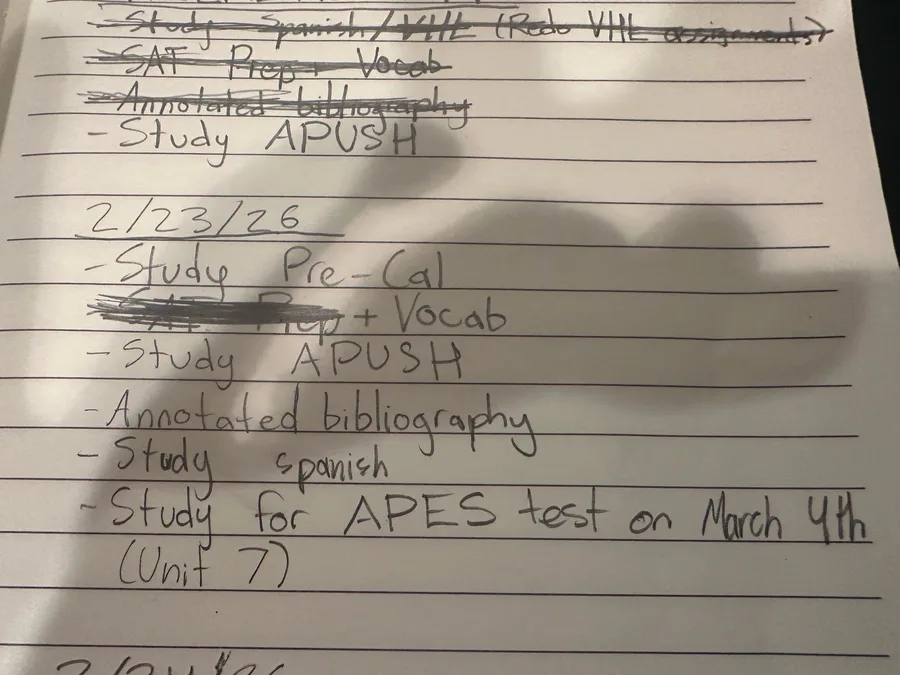 - Study Spanish/VHL (Redo VHL assignments)
- SAT Prep + Vocab
- Annotated bibliography
- Study APUSH
2/23/26
- Study Pre-Cal
SAT Prep + Vocab
- Study APUSH
- Annotated bibliography
- Study spanish
- Study for APES test on March 4th
(Unit 7)